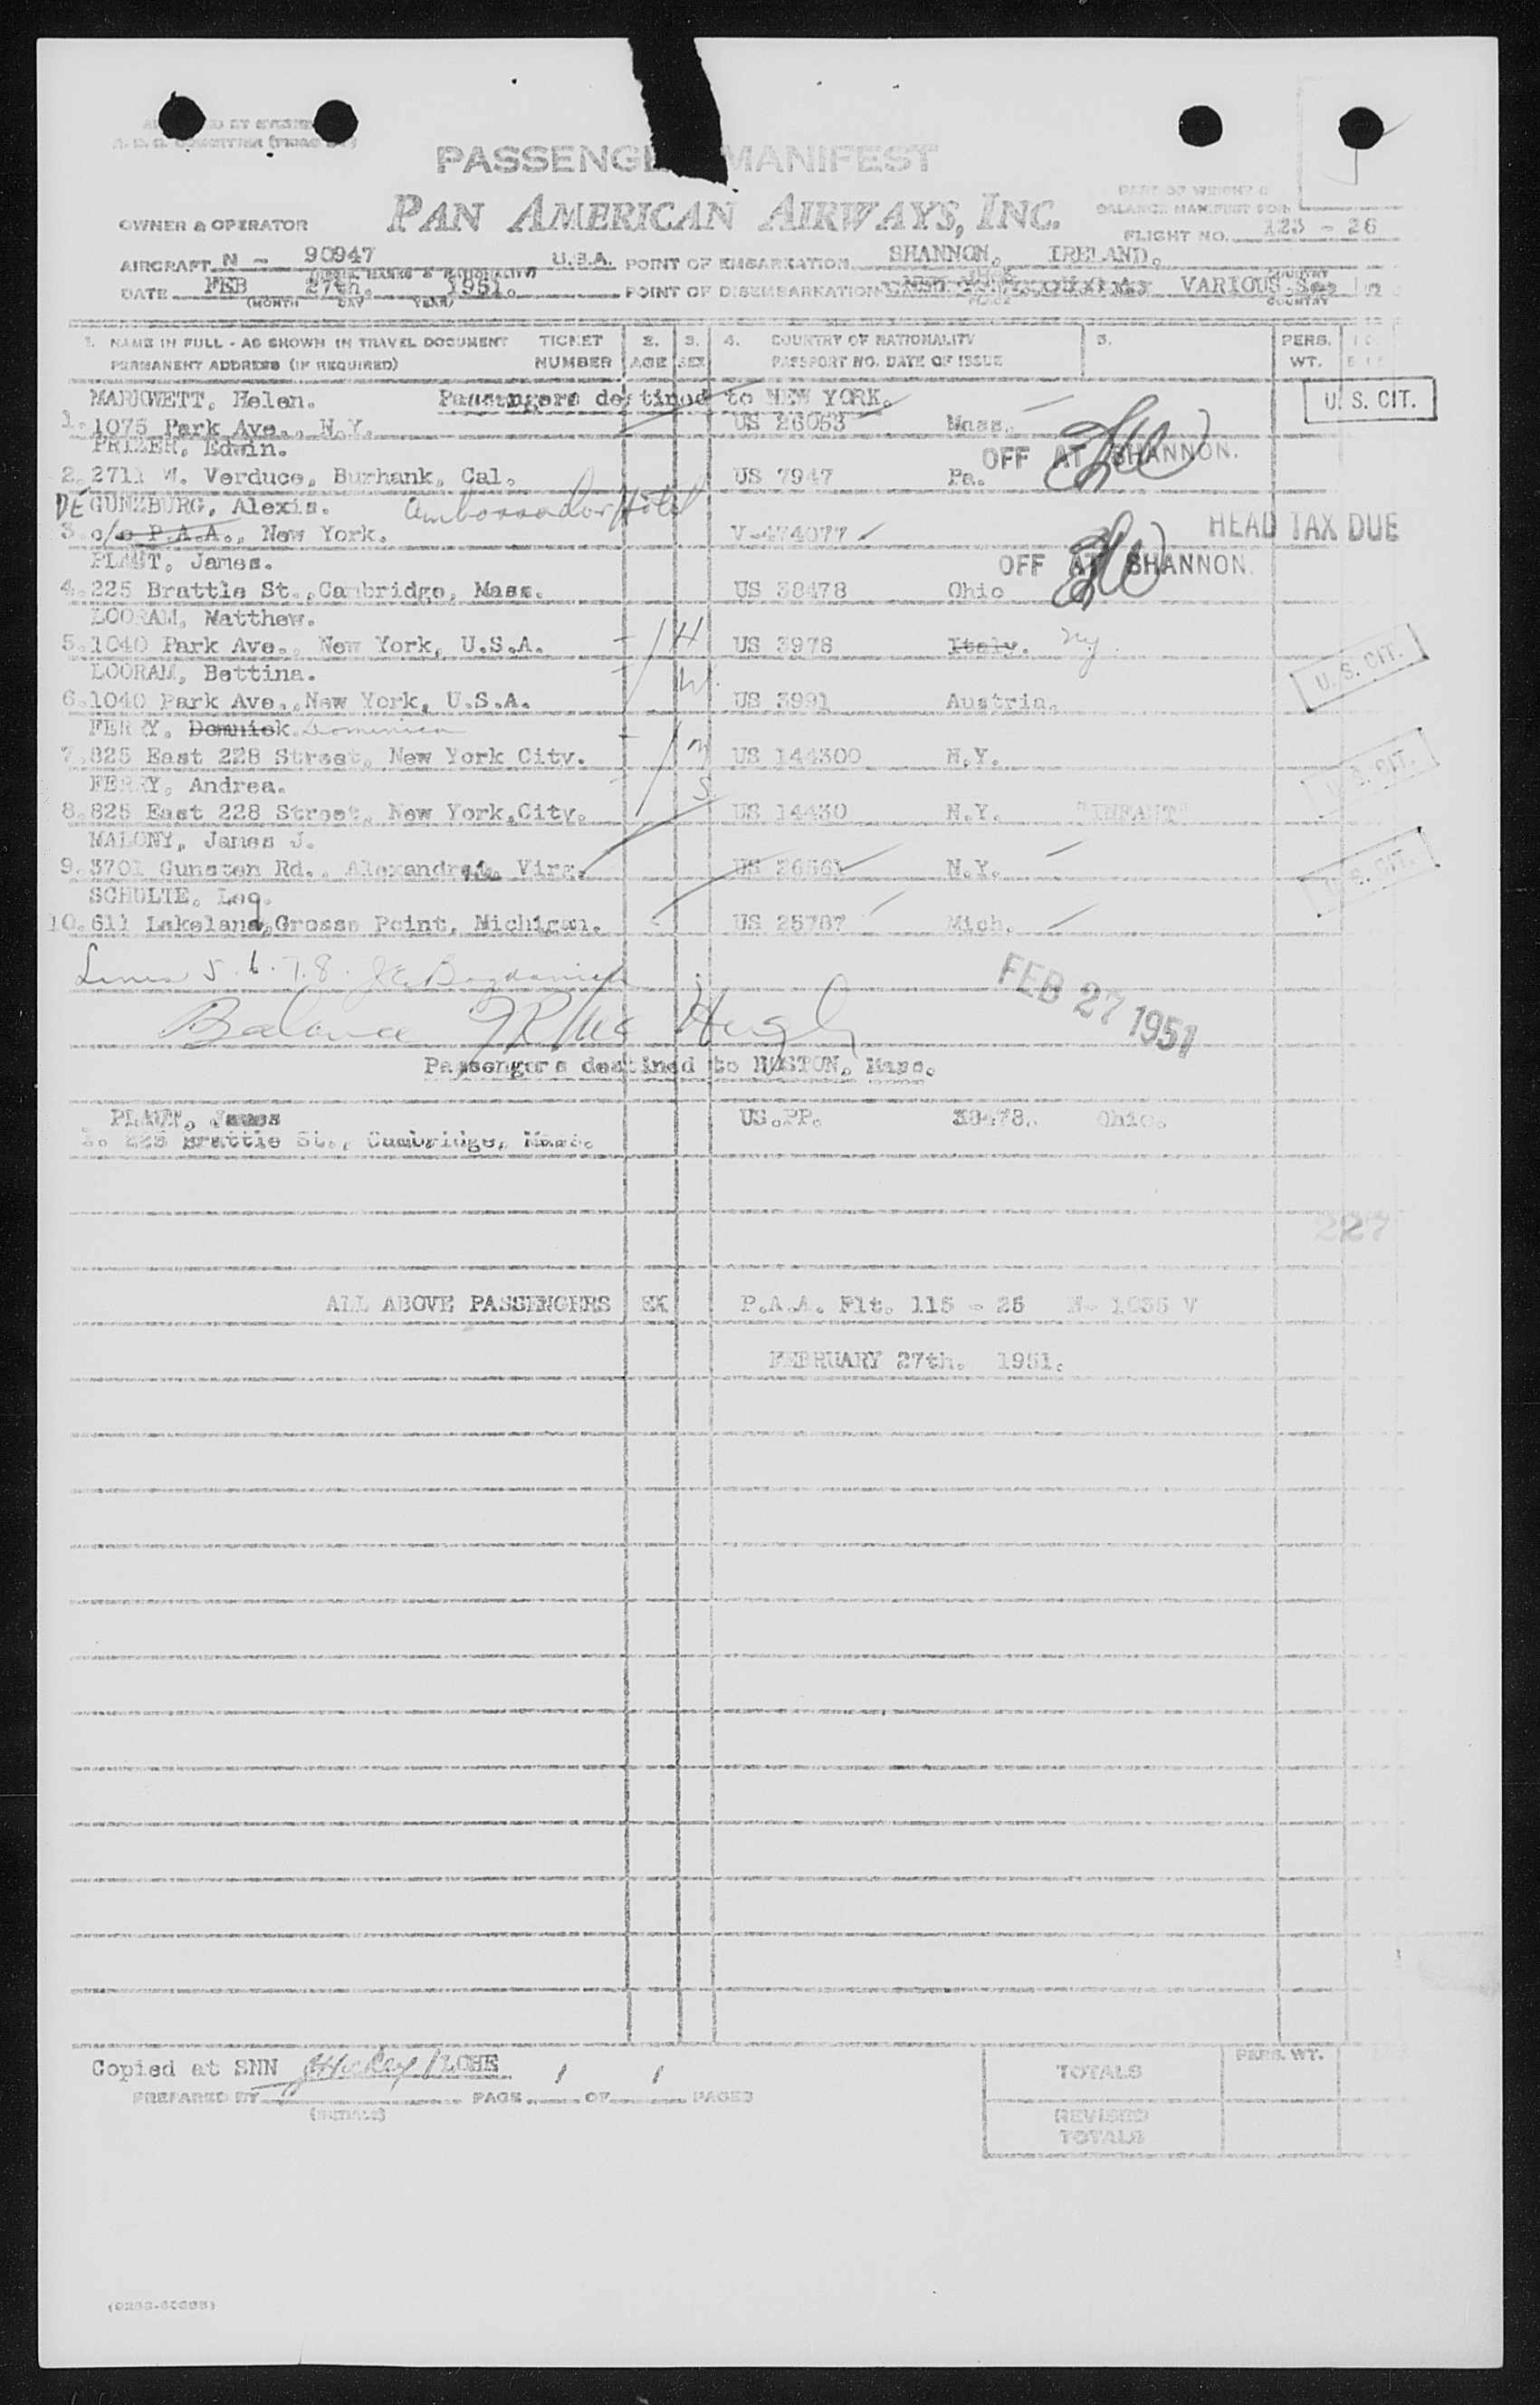 PASSENGE MANIFEST
PAN AMERICAN AIRWAYS, INC.
PART OF WEIGHT &
BALANCE MANIFEST FOR
OWNER & OPERATOR
FLIGHT NO. 123 - 26
AIRCRAFT N - 90947 U.S.A. POINT OF EMBARKATION SHANNON, IRELAND.
DATE FEB 27th. 1951. POINT OF DISEMBARKATION VARIOUS
(MONTH DAY YEAR) PLACE COUNTRY
1. NAME IN FULL - AS SHOWN IN TRAVEL DOCUMENT TICKET 2. 3. 4. COUNTRY OF NATIONALITY 5. PERS.
PERMANENT ADDRESS (IF REQUIRED) NUMBER AGE SEX PASSPORT NO. DATE OF ISSUE WT.
MARKWETT, Helen. Passengers destined to NEW YORK.
U. S. CIT.
1. 1075 Park Ave., N.Y. US 26053 Mass.
PRIZER, Edwin. OFF AT SHANNON.
2. 2711 W. Verduce, Burbank, Cal. US 7947 Pa.
DE GUNZBURG, Alexis. Ambassador Hotel
HEAD TAX DUE
3. c/o P.A.A., New York. V-474077
PLAUT, James. OFF AT SHANNON.
4. 225 Brattle St., Cambridge, Mass. US 38478 Ohio
LOORAM, Matthew.
5. 1040 Park Ave., New York, U.S.A. H US 3978 Italy. NY.
LOORAM, Bettina. W. U. S. CIT.
6. 1040 Park Ave., New York, U.S.A. US 3991 Austria.
FERRY, Domnick. Dominica
7. 825 East 228 Street, New York City. M US 144300 N.Y.
U. S. CIT.
FERRY, Andrea. S.
8. 825 East 228 Street, New York, City. US 14430 N.Y. "INFANT"
MALONY, James J.
9. 3701 Gunston Rd., Alexandria Virg. US 26561 N.Y.
U. S. CIT.
SCHULTE, Leo.
10. 611 Lakeland, Grosse Point, Michigan. US 25787 Mich.
Lines 5. 6. 7. 8.
FEB 27 1951
Balance McHugh
Passengers destined to BOSTON, Mass.
PLAUT, James US.PP. 38478. Ohio.
1. 225 Brattle St., Cambridge, Mass.
227
ALL ABOVE PASSENGERS EX P.A.A. Flt. 115 - 25 N- 1035 V
FEBRUARY 27th. 1951.
Copied at SNN
PREPARED BY PAGE 1 OF 1 PAGES
(SIGNATURE)
TOTALS PERS. WT.
REVISED
TOTALS